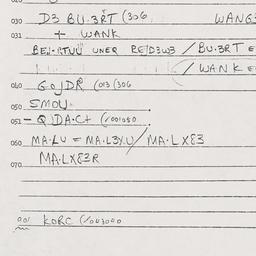 030 D3 BU.3RT (306 WANG
031 + WANK
UNER / BU.3RT E
/ WANK E
040 GOJDR (013 (306
050 SMOU
051 - QDA.C+ (/001050
060 MA.LU = MA.L3Y.U / MA.LXE3
070 MA.LXE3R
001 KORC (/003000